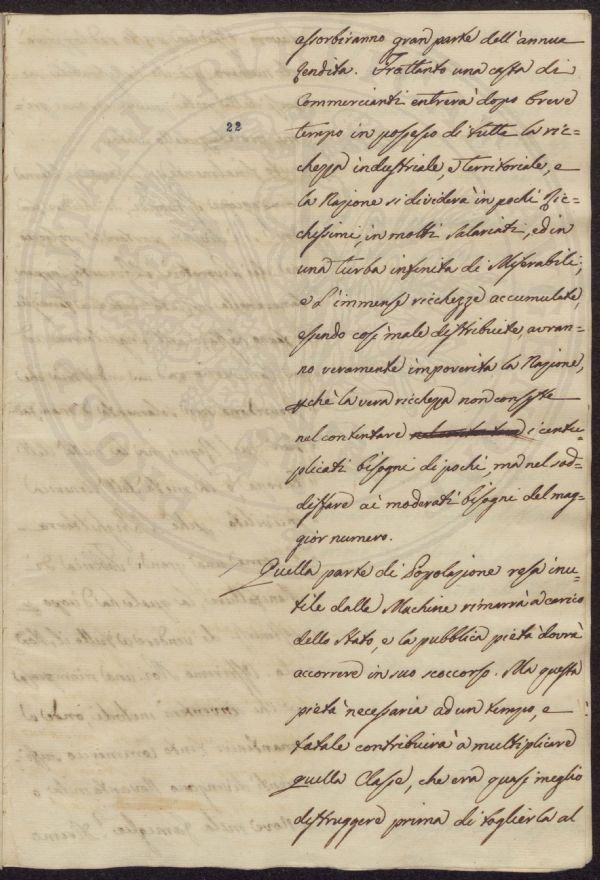 assorbiranno gran parte dell'annua
rendita. Frattanto una casta di
Commercianti entrerà dopo breve
22
tempo in possesso di tutta la ric=
chezza industriale, e territoriale, e
la Nazione si dividerà in pochi Ric=
chissimi, in molti Salariati, ed in
una turba infinita di Miserabili;
e l'immense ricchezze accumulate,
essendo così male distribuite, avran=
no veramente impoverita la Nazione,
pchè la vera ricchezza non consiste
nel contentare i centu=
plicati bisogni di pochi, ma nel sod=
disfare ai moderati bisogni del mag=
gior numero.
Quella parte di Popolazione resa inu=
tile dalle Machine rimarrà a carico
dello Stato, e la pubblica pietà dovrà
accorrere in suo soccorso. Ma questa
pietà necessaria ad un tempo, e
fatale contribuirà a multiplicare
quella Classe, che era quasi meglio
distruggere prima di toglierla al